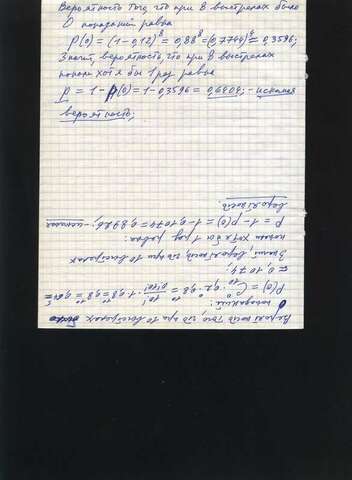 Вероятность того, что при 8 выстрелах было
0 попаданий равна
P(0) = (1-0,12)⁸ = 0,88⁸ = (0,7744)⁴ = 0,3596;
Значит, вероятность, что при 8 выстрелах
попали хотя бы 1 раз равна
P = 1 - P(0) = 1 - 0,3596 = 0,6404; - искомая
вероятность;
Вероятность того, что при 10 выстрелах было
0 попаданий:
= 0,1074;
Значит, вероятность, что при 10 выстрелах
попали хотя бы 1 раз равна:
P = 1 - P(0) = 1 - 0,1074 = 0,8926; - искомая
вероятность.